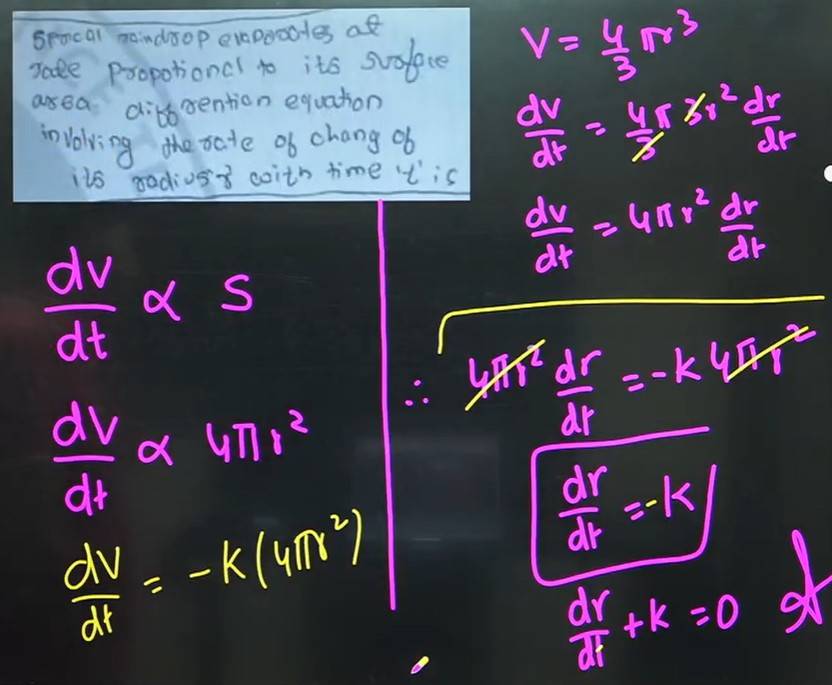 Sperical raindrop evaporates at
rate propotional to its surface
area. diffrention equation
involving the rate of chang of
its radius 'r' with time 't' is
dv/dt ∝ S
dv/dt ∝ 4πr²
dv/dt = -k(4πr²)
V = 4/3 πr³
dv/dt = 4π/3 3r² dr/dt
dv/dt = 4πr² dr/dt
∴ 4πr² dr/dt = -k 4πr²
dr/dt = -k
dr/dt + k = 0